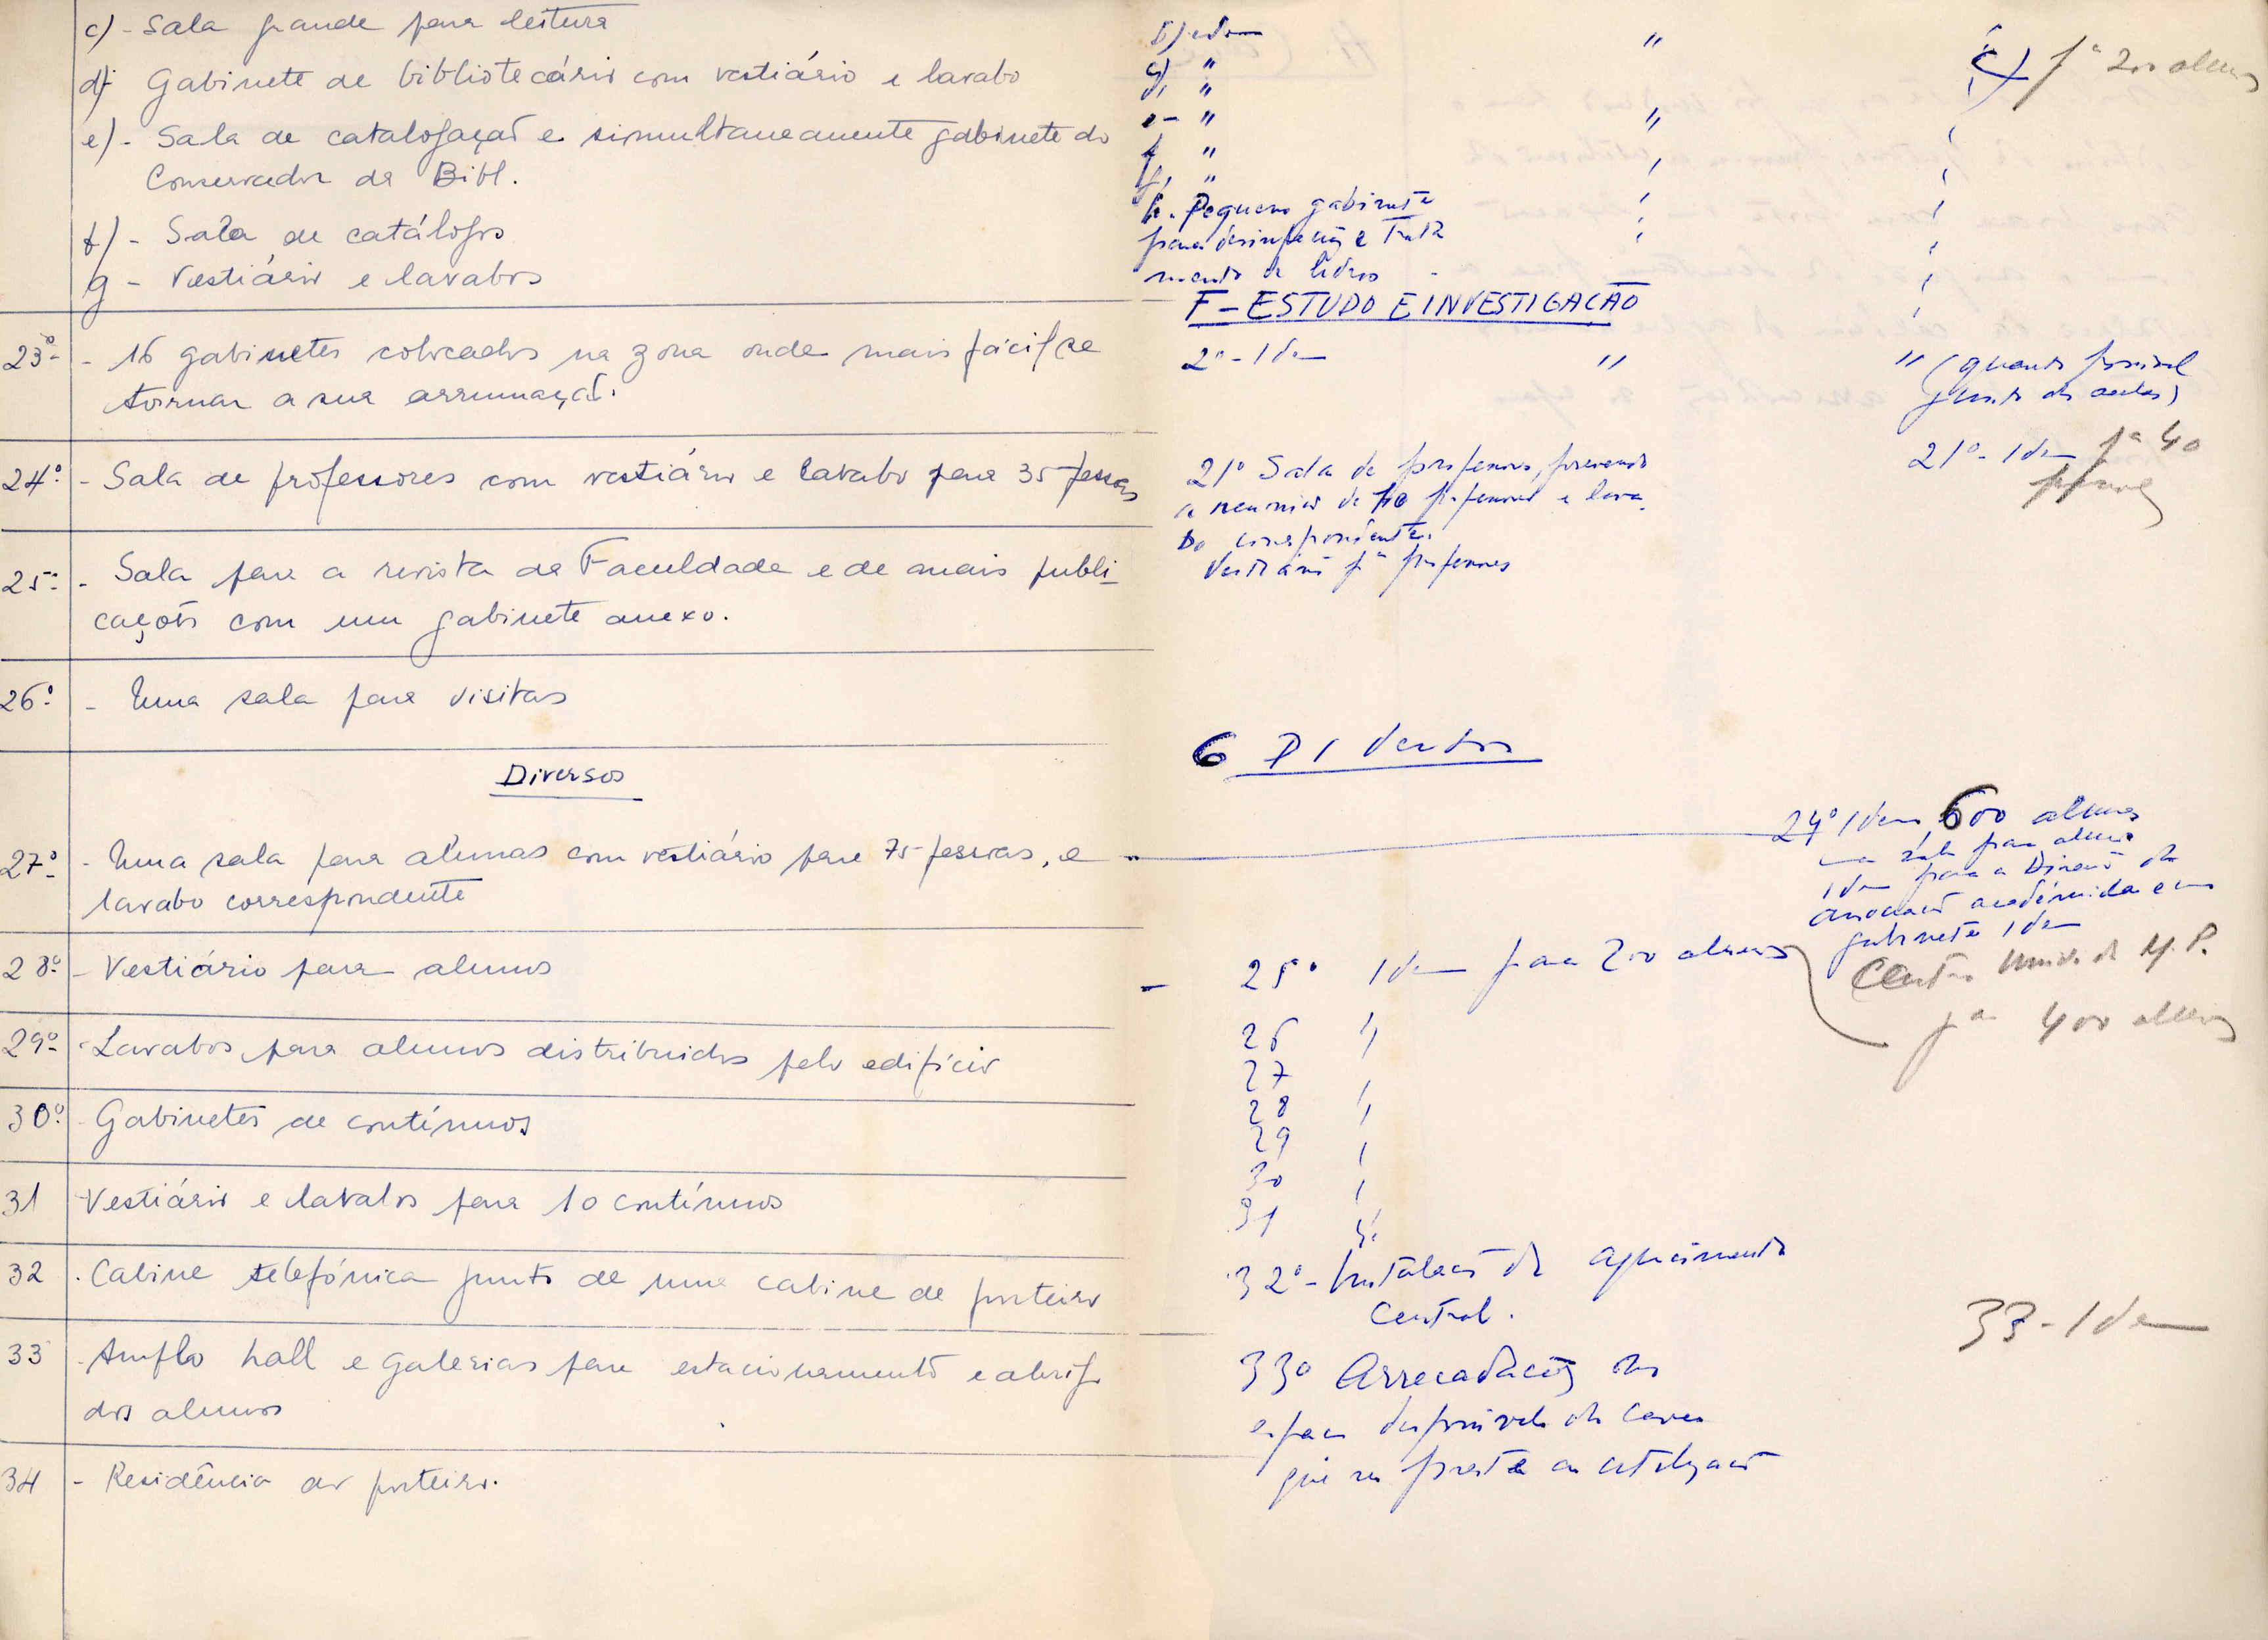 c) - Sala grande para leitura
d) Gabinete de bibliotecário com vestiário e lavabo
e) - Sala de catalogação e simultaneamente gabinete do
Conservador da Bibl.
f) - Sala de catálogos
g - Vestiário e lavabos
23º - 16 gabinetes colocados na zona onde mais fácil se
tornar a sua arrumação.
24º - Sala de professores com vestiário e lavabo para 35 pessoas
25º - Sala para a revista da Faculdade e de mais publi-
cações com um gabinete anexo.
26º - Uma sala para visitas
Diversos
27º - Uma sala para alunas com vestiário para 75 pessoas, e
lavabo correspondente
28º - Vestiário para alunos
29º - Lavabos para alunos distribuidos pelo edifício
30º Gabinetes de contínuos
31 Vestiário e lavabos para 10 contínuos
32 . Cabine telefónica junto de uma cabine de porteiro
33 . Amplo hall e galerias para estacionamento e abrigo
dos alunos
34 - Residência do porteiro.
b) idem " c) pª 200 alunos
g) "
d, "
e - " "
f, "
g, "
h - Pequeno gabinete
para desinfeção e trata
mento de livros
F - ESTUDO E INVESTIGAÇÃO
2º - Idem " " (quanto possivel
junto das aulas)
21º Sala de professores, prevendo
a reunião de professores e lava-
bo correspondente.
Vestiário pª professores
21º - Idem pª 40
6 Diversos
24º Idem 600 alunos
uma sala para alunos
Idem para a Direção da
associação académica e um
gabinete Idem
Centro Univ. da M. P.
pª 400 alunos
- 25º Idem para 200 alunos
26 "
27
28 "
29
30
31
32º - Instalação de aquecimento
Central.
33º Arrecadação no
espaço disponivel da cave
que se preste a utilização
33 - Idem